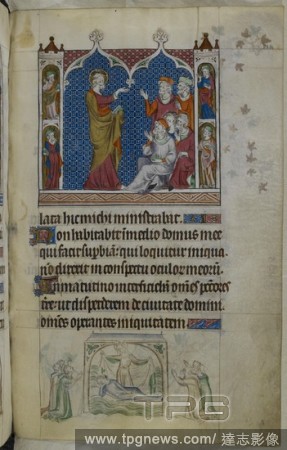 lata hic michi ministrabat.
Non habitabit in medio domus mee
qui facit supbiā: qui loquitur iniqua
nō direxit in conspectu oculor meor̄
In matutino interficiebā om̄es
tre: ut disperderem de civitate domini
omēs operantes iniquitatem
TPG
www.tpgnews.com/ 達志影像